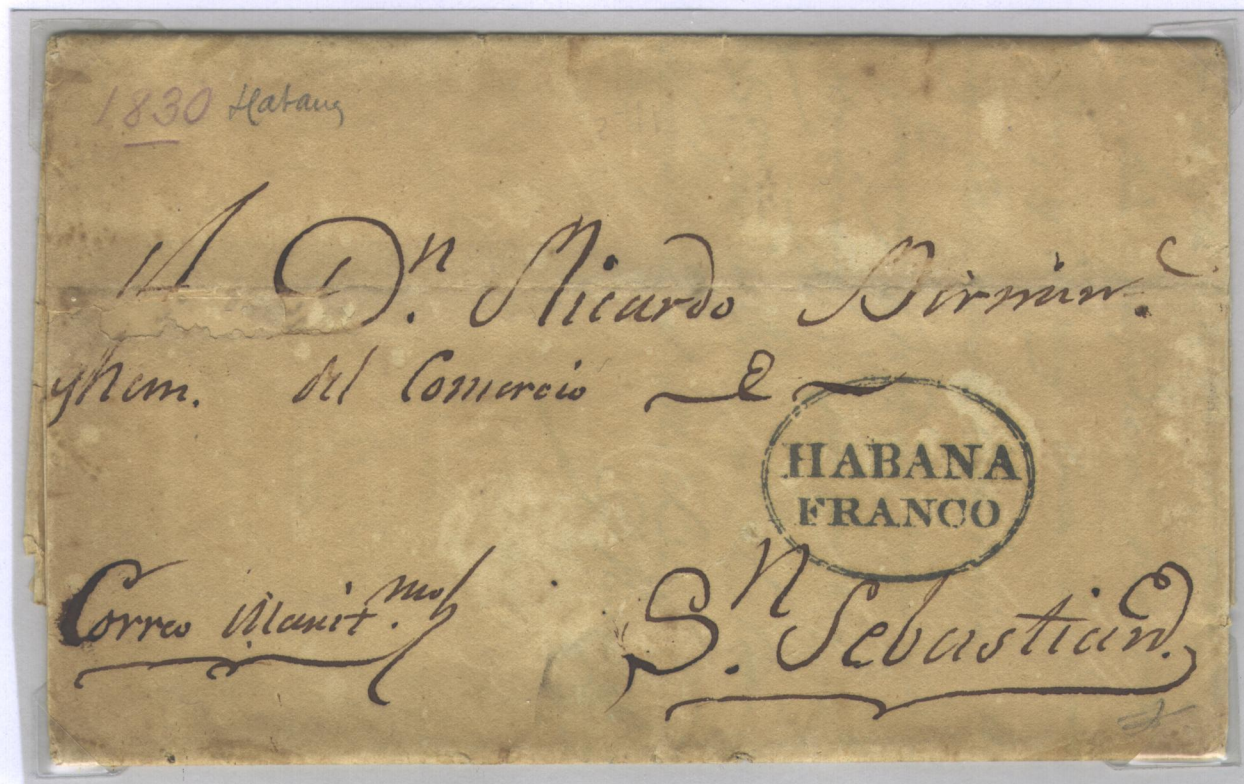 1830 Habana
A Dn. Ricardo Birmin-
ghem. del Comercio de
HABANA
FRANCO
Correo Marit.mo
Sn. Sebastian.